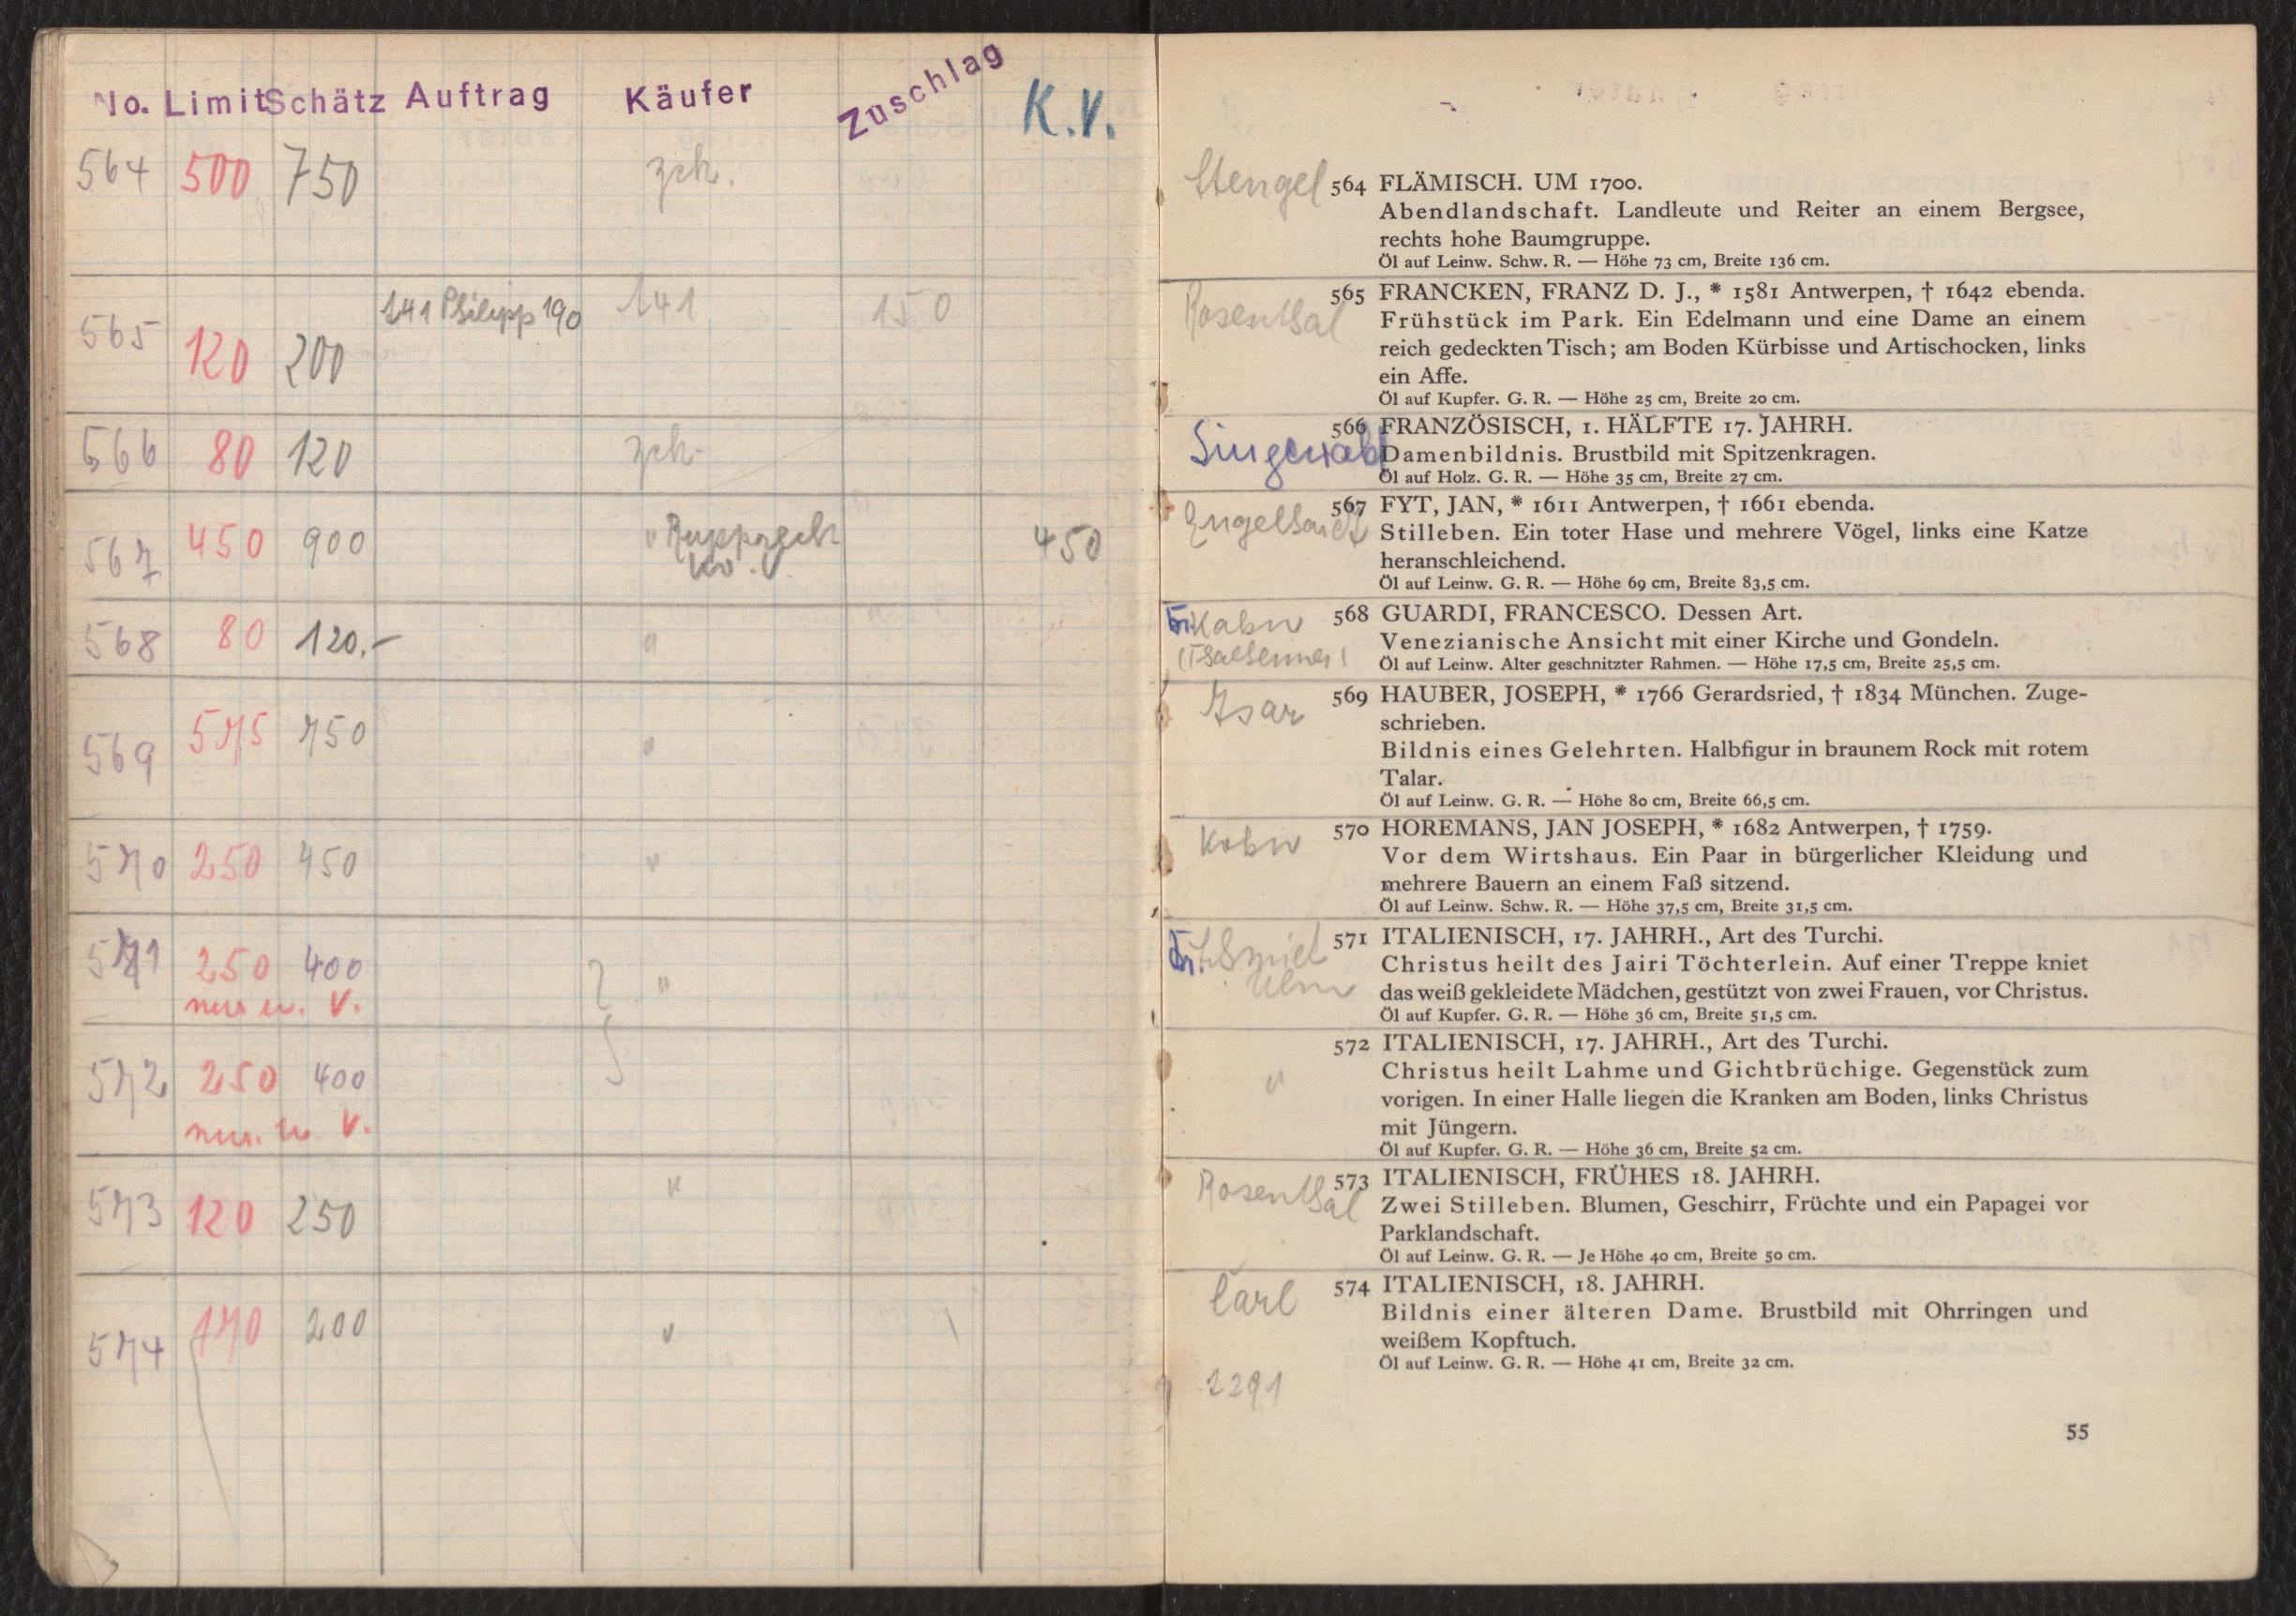 No. Limit Schätz Auftrag Käufer Zuschlag K.V.
564 500 750 zch.
565 120 200 141 Philipp 190 141 150
566 80 120 zch.
567 450 900 " Rupprecht 450
K.V.
568 80 120.- "
569 575 750 "
570 250 450 "
571 250 400 "
nur u. V.
572 250 400
nur u. V.
573 120 250 "
574 170 200 "
Stengel
564 FLÄMISCH. UM 1700.
Abendlandschaft. Landleute und Reiter an einem Bergsee,
rechts hohe Baumgruppe.
Öl auf Leinw. Schw. R. — Höhe 73 cm, Breite 136 cm.
Rosenthal
565 FRANCKEN, FRANZ D. J., * 1581 Antwerpen, † 1642 ebenda.
Frühstück im Park. Ein Edelmann und eine Dame an einem
reich gedeckten Tisch; am Boden Kürbisse und Artischocken, links
ein Affe.
Öl auf Kupfer. G. R. — Höhe 25 cm, Breite 20 cm.
Singewald
566 FRANZÖSISCH, 1. HÄLFTE 17. JAHRH.
Damenbildnis. Brustbild mit Spitzenkragen.
Öl auf Holz. G. R. — Höhe 35 cm, Breite 27 cm.
567 FYT, JAN, * 1611 Antwerpen, † 1661 ebenda.
Stilleben. Ein toter Hase und mehrere Vögel, links eine Katze
heranschleichend.
Öl auf Leinw. G. R. — Höhe 69 cm, Breite 83,5 cm.
568 GUARDI, FRANCESCO. Dessen Art.
Venezianische Ansicht mit einer Kirche und Gondeln.
Öl auf Leinw. Alter geschnitzter Rahmen. — Höhe 17,5 cm, Breite 25,5 cm.
Isar
569 HAUBER, JOSEPH, * 1766 Gerardsried, † 1834 München. Zuge-
schrieben.
Bildnis eines Gelehrten. Halbfigur in braunem Rock mit rotem
Talar.
Öl auf Leinw. G. R. — Höhe 80 cm, Breite 66,5 cm.
Kohn
570 HOREMANS, JAN JOSEPH, * 1682 Antwerpen, † 1759.
Vor dem Wirtshaus. Ein Paar in bürgerlicher Kleidung und
mehrere Bauern an einem Faß sitzend.
Öl auf Leinw. Schw. R. — Höhe 37,5 cm, Breite 31,5 cm.
Ulm
571 ITALIENISCH, 17. JAHRH., Art des Turchi.
Christus heilt des Jairi Töchterlein. Auf einer Treppe kniet
das weiß gekleidete Mädchen, gestützt von zwei Frauen, vor Christus.
Öl auf Kupfer. G. R. — Höhe 36 cm, Breite 51,5 cm.
"
572 ITALIENISCH, 17. JAHRH., Art des Turchi.
Christus heilt Lahme und Gichtbrüchige. Gegenstück zum
vorigen. In einer Halle liegen die Kranken am Boden, links Christus
mit Jüngern.
Öl auf Kupfer. G. R. — Höhe 36 cm, Breite 52 cm.
Rosenthal
573 ITALIENISCH, FRÜHES 18. JAHRH.
Zwei Stilleben. Blumen, Geschirr, Früchte und ein Papagei vor
Parklandschaft.
Öl auf Leinw. G. R. — Je Höhe 40 cm, Breite 50 cm.
Carl
574 ITALIENISCH, 18. JAHRH.
Bildnis einer älteren Dame. Brustbild mit Ohrringen und
weißem Kopftuch.
Öl auf Leinw. G. R. — Höhe 41 cm, Breite 32 cm.
2291
55